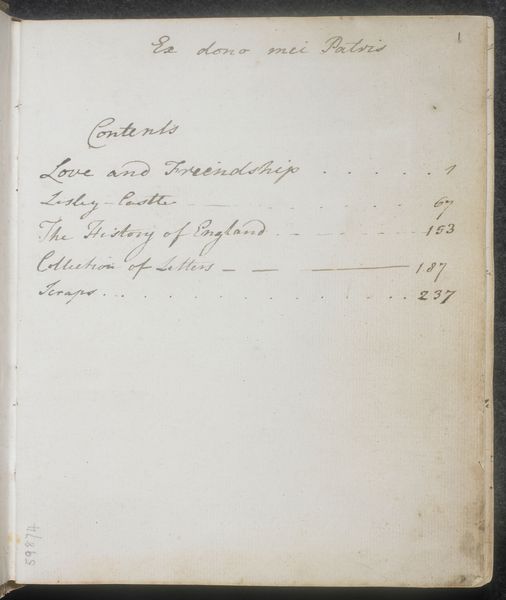 1
Ex dono mei Patris
Contents
Love and Freindship . . . . . . 1
Lesley-Castle - - - . . . . . 67
The History of England - - - - - 153
Collection of Letters - - — 187
Scraps . . . . . . . . . . . . 237
59874